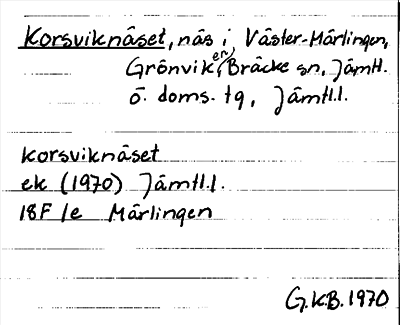 Korsviknäset, näs i Väster-Mårlingen,
Grönviken, Bräcke sn, Jämtl.
ö. doms. tg, Jämtl.l.
Korsviknäset
ek (1970) Jämtl.l.
18F 1e Mårlingen
G.K.B. 1970